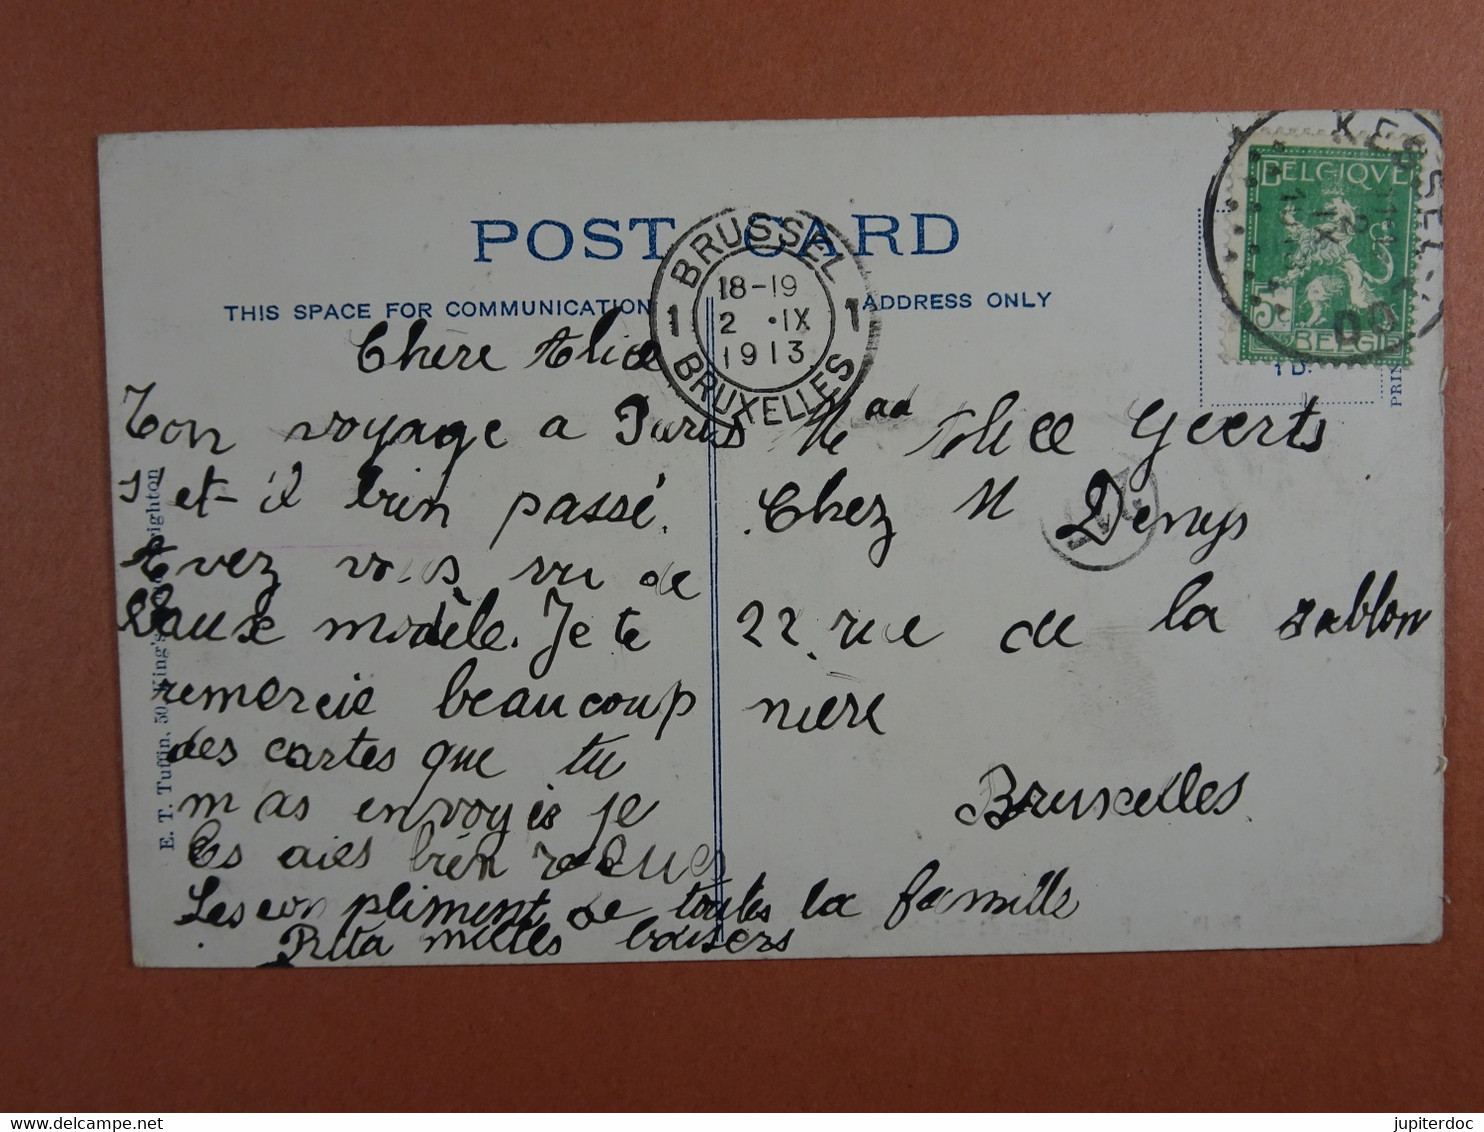 POST CARD
THIS SPACE FOR COMMUNICATION
ADDRESS ONLY
BRUSSEL
18-19
1 2 •IX 1
1913
BRUXELLES
KESSEL-
BELGIQUE
5c
BELGIË
1D.
PRIN
Chere Alice
Ton voyage a Paris
s'et-il bien passé.
Avez vous vu de
modèle. Je te
remercie beaucoup
des cartes que tu
m as envoyés je
Es aies bien recues
Les compliment de toutes la famille
Rita milles baisers
Mad Alice Geerts
Chez M Denys
22 rue de la sablon
niere
Bruxelles
E. T. Tuffin, 50, King's
ighton
jupiterdoc